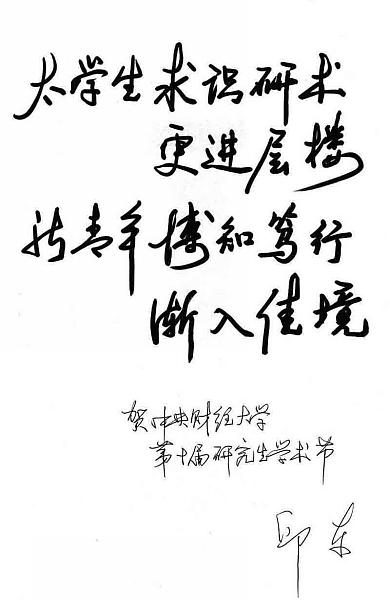 太学生求识研术
更进层楼
新青年博知笃行
渐入佳境
贺中央财经大学
第十届研究生学术节
邱东